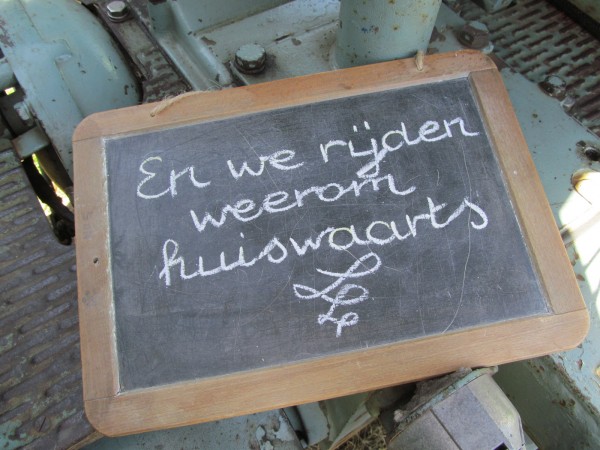 En we rijden
weerom
huiswaarts